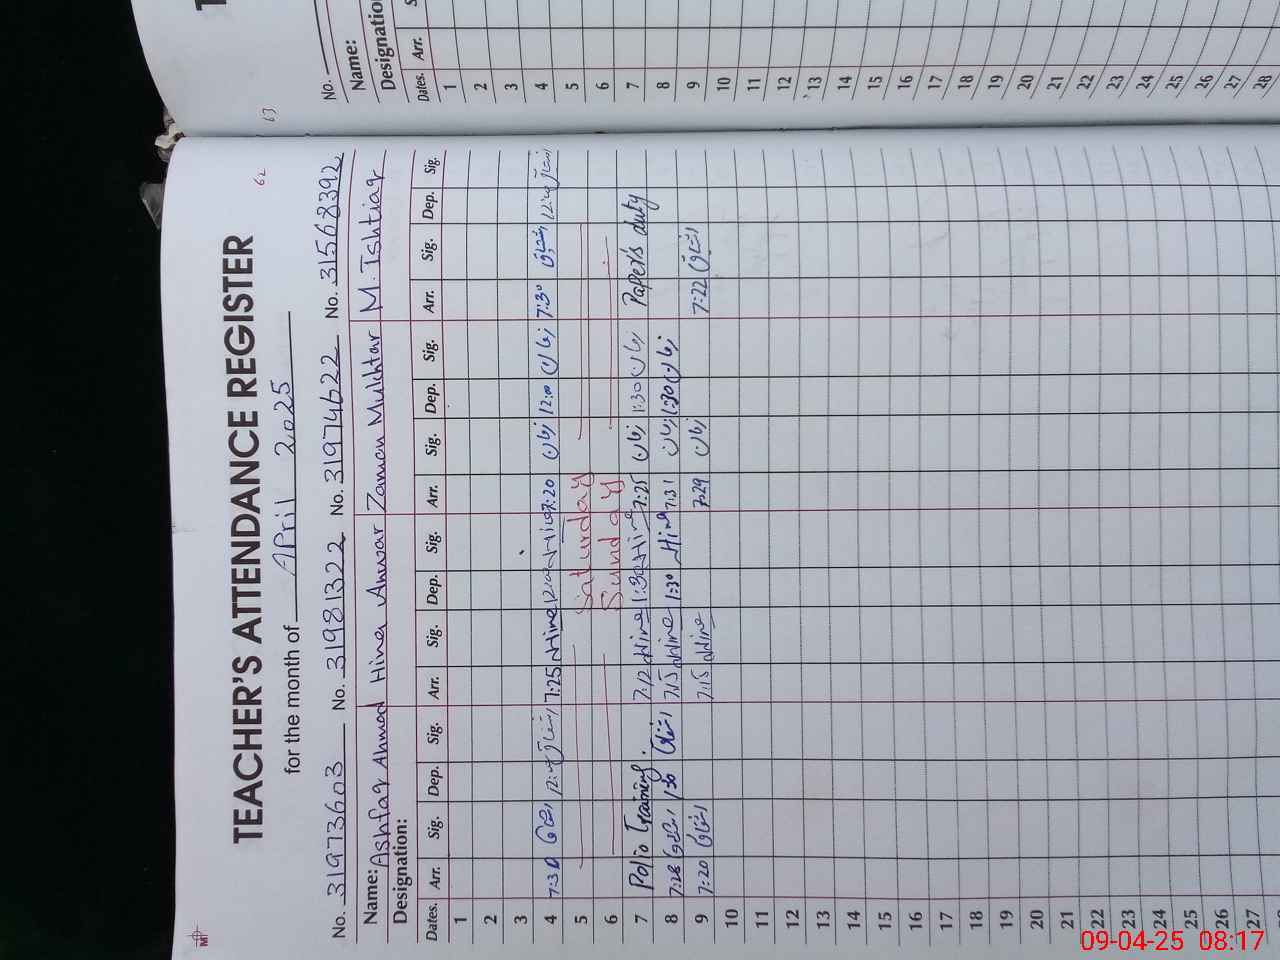 TEACHER'S ATTENDANCE REGISTER
62
for the month of April 2025
No. 31973603 No. 31981322 No. 31974622 No. 31568392
Name: Ashfaq Ahmad Hina Anwar Zaman Mukhtar M. Ishtiaq
Designation:
Dates. Arr. Sig. Dep. Sig. Arr. Sig. Dep. Sig. Arr. Sig. Dep. Sig. Arr. Sig. Dep. Sig.
1
2
3
4 7:30 12:00 7:25 Hina 12:00 Hina 7:20 12:00 7:30 12:00
5 Saturday
6 Sunday
7 Polio Training. 7:12 Hina 1:30 Hina 7:25 1:30 Paper's duty
8 7:28 1:30 7:15 Hina 1:30 Hina 7:31 1:30
9 7:20 7:15 Hina 7:29 7:22
10
11
12
13
14
15
16
17
18
19
20
21
22
23
24
25
26
27
63
No.
Name:
Dates. Arr.
1
2
3
4
5
6
7
8
9
10
11
12
13
14
15
16
17
18
19
20
21
22
23
24
25
26
27
28
09-04-25 08:17